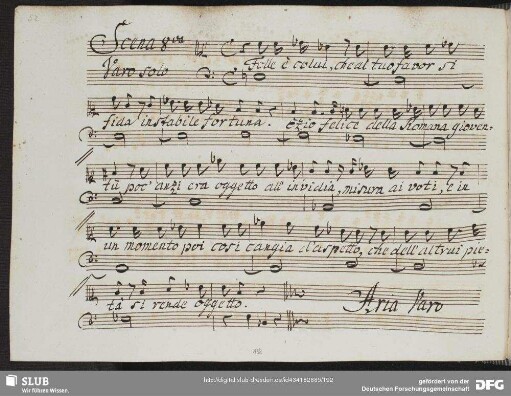 Scena 8va
Varo solo
Folle è colui, che al tuo favor si
fida instabile fortuna. Ezio felice della Romana gioven-
tù poc' anzi era oggetto all' invidia, misura ai voti, e in
un momento poi così cangia d'aspetto, che dell' altrui pie-
tà si rende oggetto.
Aria Varo
SLUB
Wir führen Wissen.
gefördert von der
Deutschen Forschungsgemeinschaft
DFG